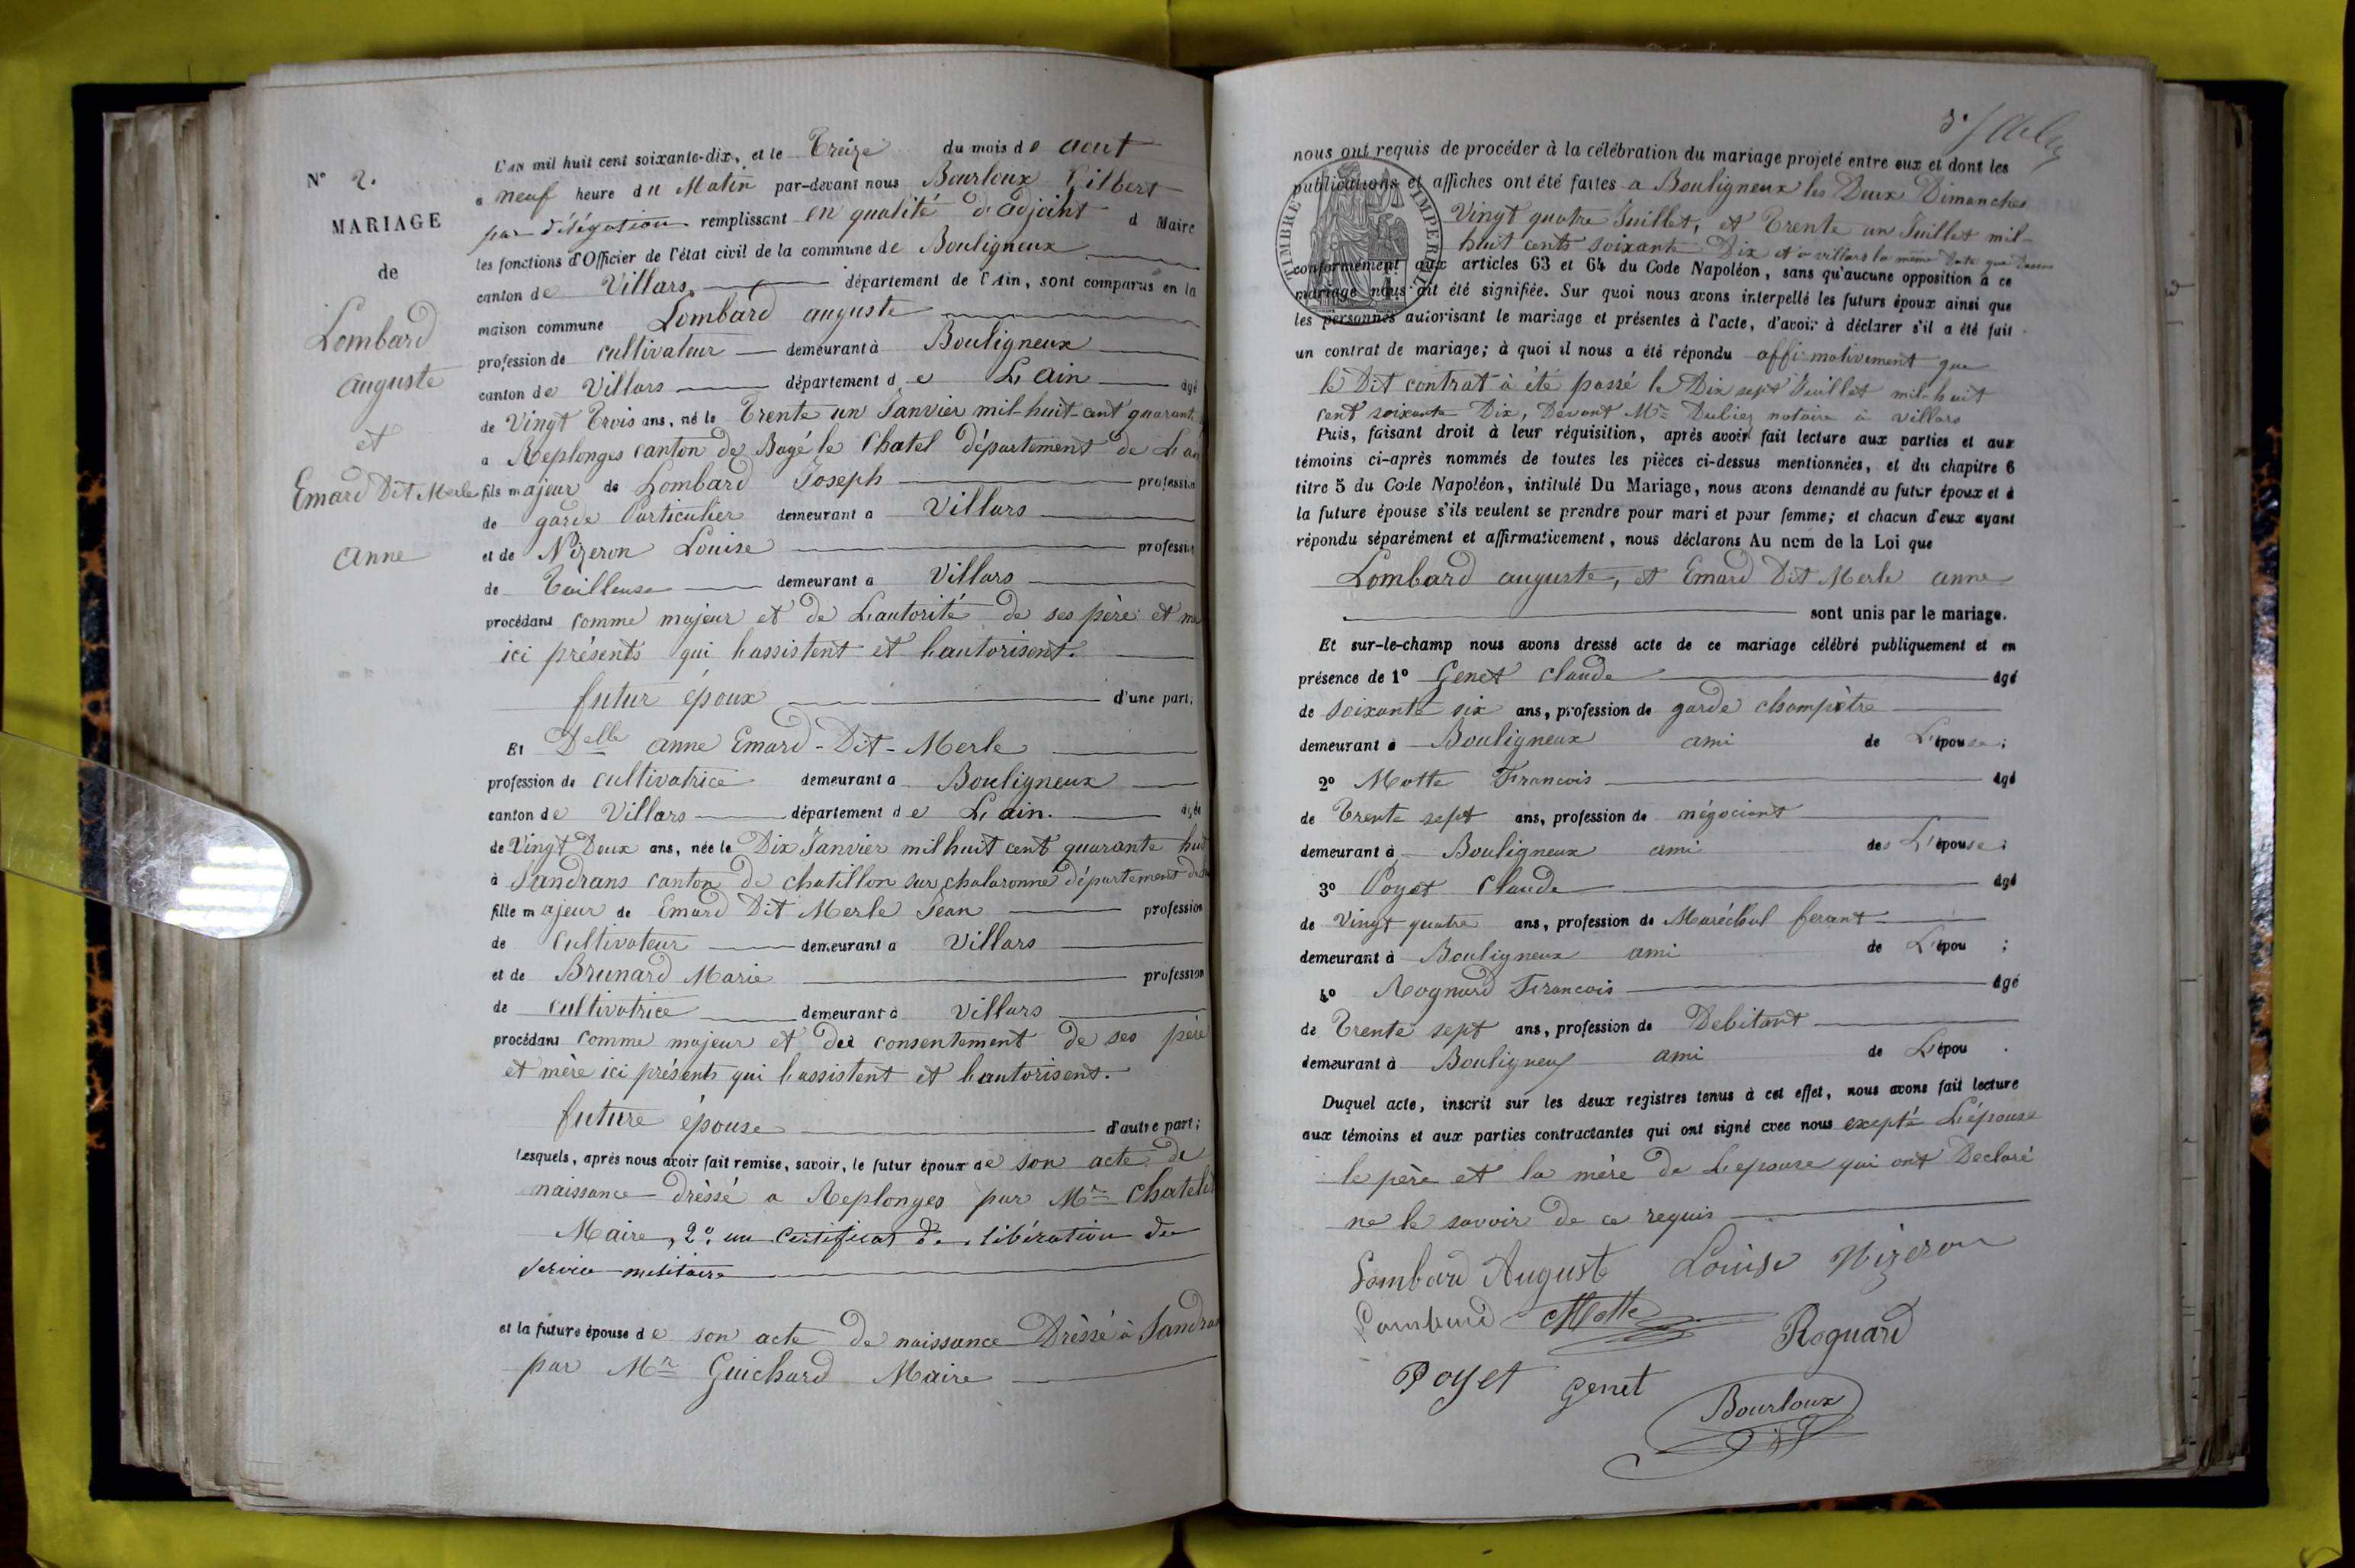 N° 2.
MARIAGE
de
Lombard
auguste
et
Emard Dit Merle
anne
L'AN mil huit cent soixante-dix, et le Treize du mois de aout
a neuf heure du Matin par-devant nous Bourloux Gilbert
par délégation remplissant en qualité d'adjoint d Maire
les fonctions d'Officier de l'état civil de la commune de Bouligneux
canton de Villars département de l'Ain, sont comparus en la
maison commune Lombard auguste
profession de cultivateur demeurant à Bouligneux
canton de Villars département de L'ain âgé
de Vingt Trois ans, né le Trente un Janvier mil-huit-cent quarante
a Replonges canton de Bagé le Chatel département de L'ain
fils majeur de Lombard Joseph profession
de garde Particulier demeurant a Villars
et de Nizeron Louise profession
de Tailleuse demeurant a Villars
procédant comme majeur et de L'autorité de ses père et
ici présents qui l'assistent et l'autorisent.
futur époux d'une part,
Et Delle anne Emard-Dit-Merle
profession de cultivatrice demeurant a Bouligneux
canton de Villars département de L'ain. âgée
de Vingt Deux ans, née le Dix Janvier mil huit cent quarante huit
à Sandrans canton de chatillon sur chalaronne département
fille majeur de Emard Dit Merle Jean profession
de Cultivateur demeurant a Villars
et de Brunard Marie profession
de cultivatrice demeurant à Villars
procédant comme majeur et du consentement de ses père
et mère ici présents qui l'assistent et l'autorisent.
future épouse d'autre part;
Lesquels, après nous avoir fait remise, savoir, le futur époux de son acte de
naissance drèssé a Replonges par Mr
Maire, 2° un certificat de libération du
service militaire
et la future épouse de son acte de naissance Drèssé à Sandrans
par Mr Guichard Maire
nous ont requis de procéder à la célébration du mariage projeté entre eux et dont les
publications et affiches ont été faites a Bouligneux les Deux Dimanches
Vingt quatre Juillet, et Trente un Juillet mil-
huit cents soixante-Dix et a villars la même Date que Dessus
TIMBRE IMPERIAL
conformément aux articles 63 et 64 du Code Napoléon, sans qu'aucune opposition à ce
mariage nous ait été signifiée. Sur quoi nous avons interpellé les futurs époux ainsi que
les personnes autorisant le mariage et présentes à l'acte, d'avoir à déclarer s'il a été fait
un contrat de mariage; à quoi il nous a été répondu affirmativement que
le Dit contrat à été passé le Dix sept Juillet mil-huit
cent soixante Dix, Devant Mre Dubiez notaire à villars
Puis, faisant droit à leur réquisition, après avoir fait lecture aux parties et aux
témoins ci-après nommés de toutes les pièces ci-dessus mentionnées, et du chapitre 6
titre 5 du Code Napoléon, intitulé Du Mariage, nous avons demandé au futur époux et à
la future épouse s'ils veulent se prendre pour mari et pour femme; et chacun d'eux ayant
répondu séparément et affirmativement, nous déclarons Au nom de la Loi que
Lombard auguste, et Emard Dit Merle anne
sont unis par le mariage.
Et sur-le-champ nous avons dressé acte de ce mariage célébré publiquement et en
présence de 1° Genet Claude âgé
de soixante six ans, profession de garde champètre
demeurant à Bouligneux ami de L'épouse;
2° Motte Francois âgé
de Trente sept ans, profession de négociant
demeurant à Bouligneux ami de L'épouse;
3° Poyet Claude âgé
de Vingt quatre ans, profession de Maréchal ferant
demeurant à Bouligneux ami de L'épou ;
4° Rognard Francois âgé
de Trente sept ans, profession de Debitant
demeurant à Bouligneux ami de L'épou .
Duquel acte, inscrit sur les deux registres tenus à cet effet, nous avons fait lecture
aux témoins et aux parties contractantes qui ont signé avec nous excepté L'épouse
le père et la mère de L'epouse qui ont Declaré
ne le savoir de ce requis
Lombard Auguste Louise Nizeron
Lombard Motte Rognard
Poyet Genet
Bourloux